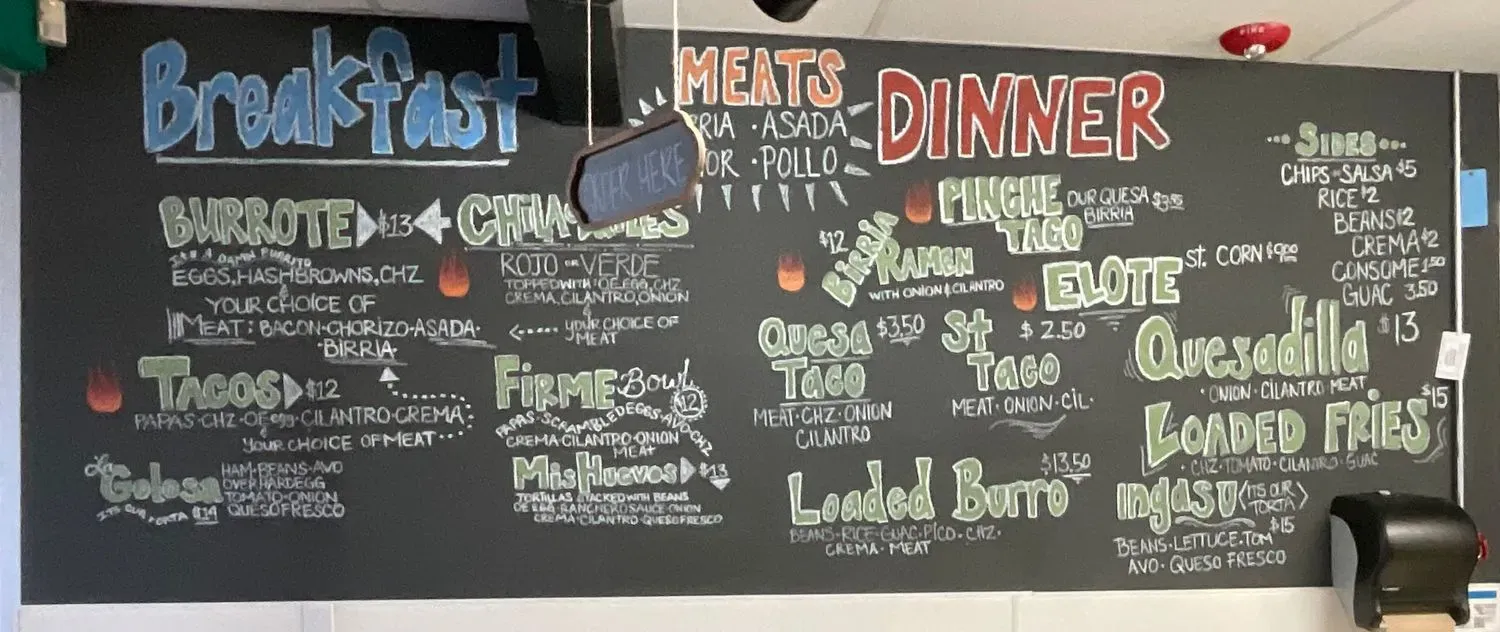 Breakfast
BURROTE $13
IT'S A DAMN BURRITO
EGGS, HASHBROWNS, CHZ
&
YOUR CHOICE OF
MEAT: BACON·CHORIZO·ASADA·
·BIRRIA·
TACOS $12
PAPAS·CHZ·OE egg·CILANTRO·CREMA
YOUR CHOICE OF MEAT
La Golosa
ITS OUR TORTA $14
HAM·BEANS·AVO
OVERHARDEGG
TOMATO·ONION
QUESOFRESCO
ROJO OR VERDE
TOPPED WITH: OE EGG, CHZ
CREMA, CILANTRO, ONION
&
YOUR CHOICE OF
MEAT
FIRME Bowl
12
PAPAS·SCRAMBLEDEGGS·AVO·CHZ
CREMA·CILANTRO·ONION
MEAT
Mis Huevos $13
TORTILLAS STACKED WITH BEANS
OE EGG·RANCHERO SAUCE·ONION
CREMA·CILANTRO·QUESOFRESCO
MEATS
RIA ·ASADA
OR ·POLLO
ORDER HERE
DINNER
PINCHE
TACO
OUR QUESA
BIRRIA
$12
BIRRIA
RAMEN
WITH ONION & CILANTRO
ELOTE
ST. CORN
Quesa $3.50
Taco
MEAT·CHZ·ONION
CILANTRO
St $2.50
Taco
MEAT·ONION·CIL·
Loaded Burro $13.50
BEANS·RICE·GUAC·PICO·CHZ·
CREMA·MEAT
SIDES
CHIPS-SALSA $5
RICE $2
BEANS $2
CREMA $2
CONSOME 1.50
GUAC 3.50
Quesadilla $13
·ONION·CILANTRO MEAT
LOADED FRIES $15
·CHZ·TOMATO·CILANTRO·GUAC
INGASU <ITS OUR
TORTA>
$15
BEANS·LETTUCE·TOM
AVO·QUESO FRESCO